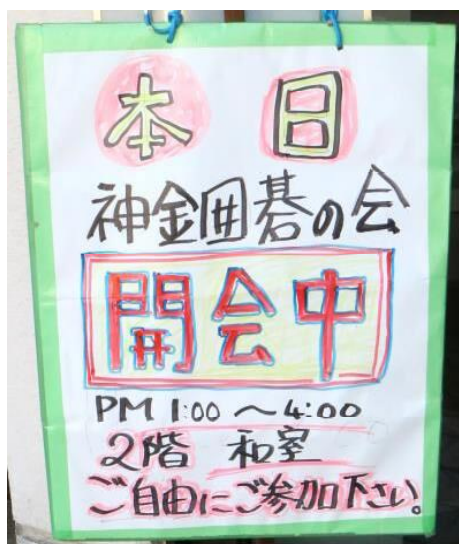 本日
神金囲碁の会
開会中
PM 1:00 〜 4:00
2階 和室
ご自由にご参加下さい。